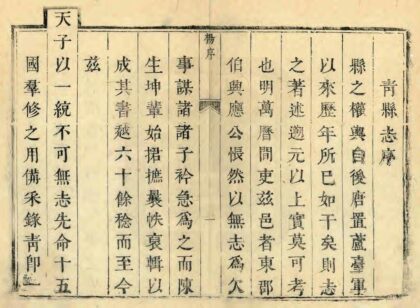 青縣志序
縣之權輿自後唐置蘆臺軍
以來歷年所已如干矣則志
之著述遡元以上實莫可考
也明萬曆間吏茲邑者東郡
伯與應公悵然以無志爲欠
事謀諸諸子衿急爲之而陳
生坤輩始捃摭曩帙裒輯以
成其書越六十餘稔而至今
茲
天子以一統不可無志先命十五
國羣修之用備采錄青卽一
楊序
一